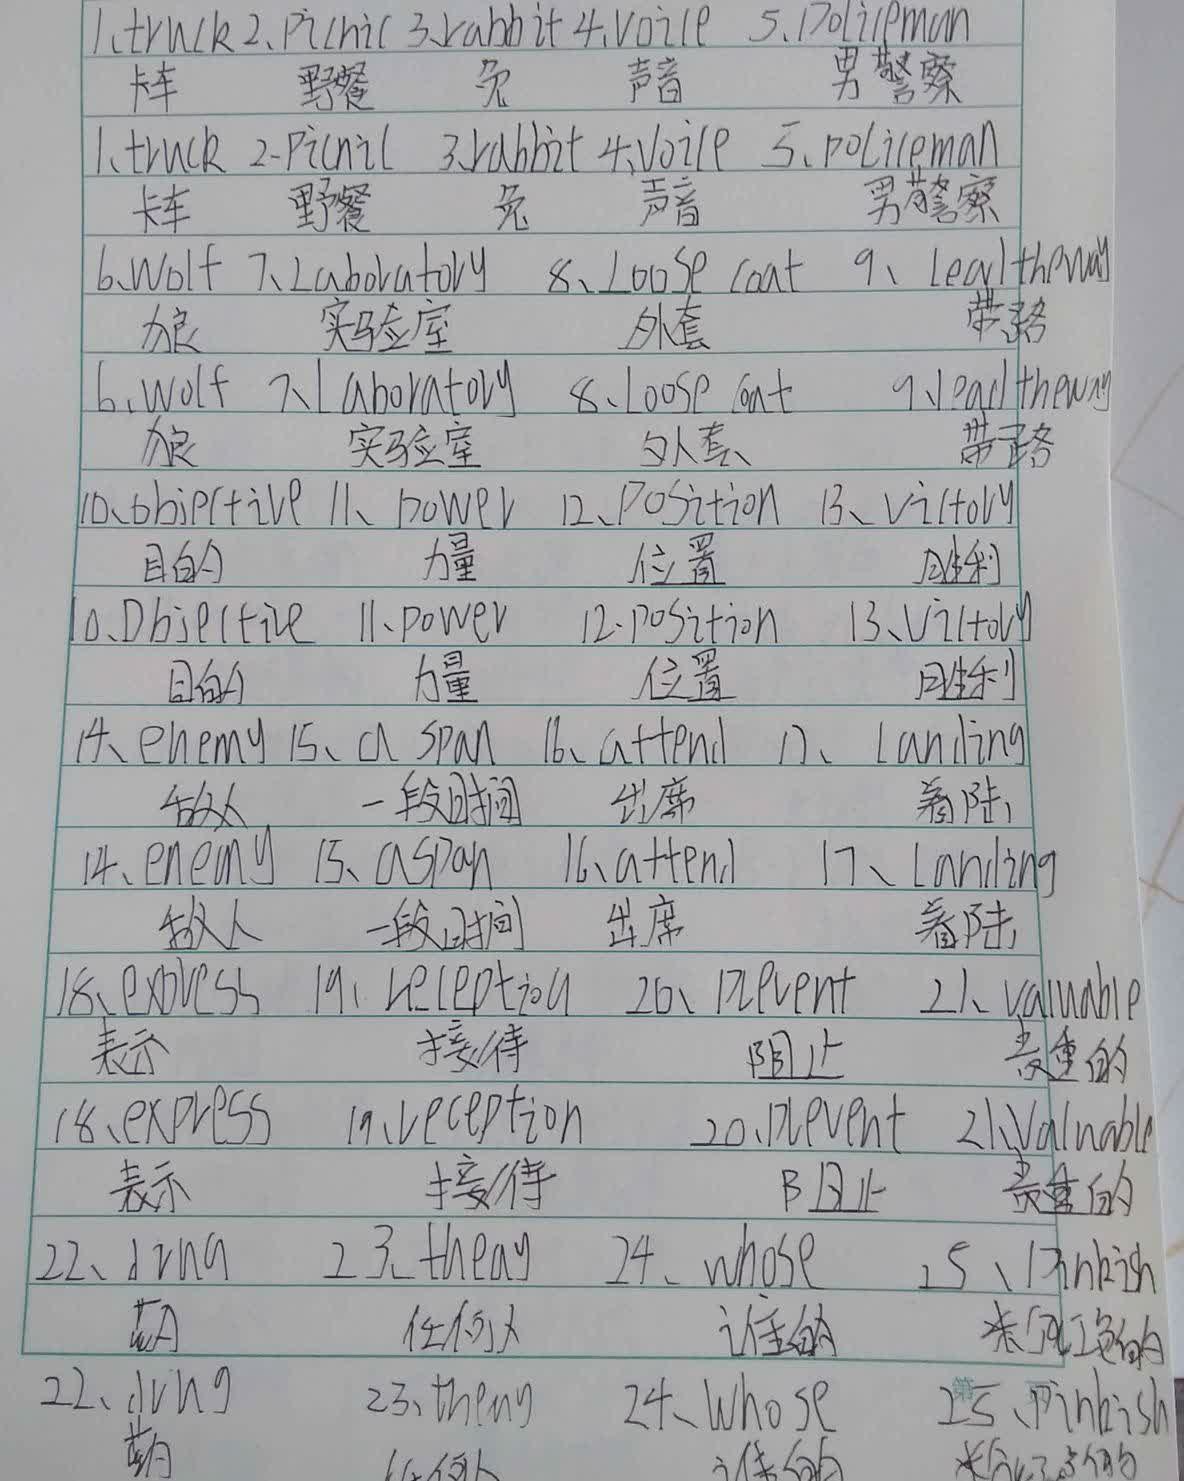 1.truck 2.Picnic 3.rabbit 4.voice 5.Policeman
卡车 野餐 兔 声音 男警察
1.truck 2.Picnic 3.rabbit 4.voice 5.policeman
卡车 野餐 兔 声音 男警察
6.Wolf 7.Laboratory 8、Loose coat 9、lead the way
狼 实验室 外套 带路
6.Wolf 7.Laboratory 8.Loose coat 9.lead the way
狼 实验室 外套 带路
10.objective 11、power 12、Position 13、victory
目的 力量 位置 胜利
10.Objective 11.power 12.position 13.victory
目的 力量 位置 胜利
14、enemy 15、a span 16、attend 17、Landing
敌人 一段时间 出席 着陆
14、enemy 15、a span 16、attend 17、Landing
敌人 一段时间 出席 着陆
18.express 19、reception 20、Prevent 21、valuable
表示 接待 阻止 贵重的
18.express 19.reception 20.Prevent 21.Valuable
表示 接待 阻止 贵重的
22、 23、 24、whose 25、Pinkish
任何人 谁的 米风红色的
22、 23. 24、Whose 25、Pinkish
任何人 谁的